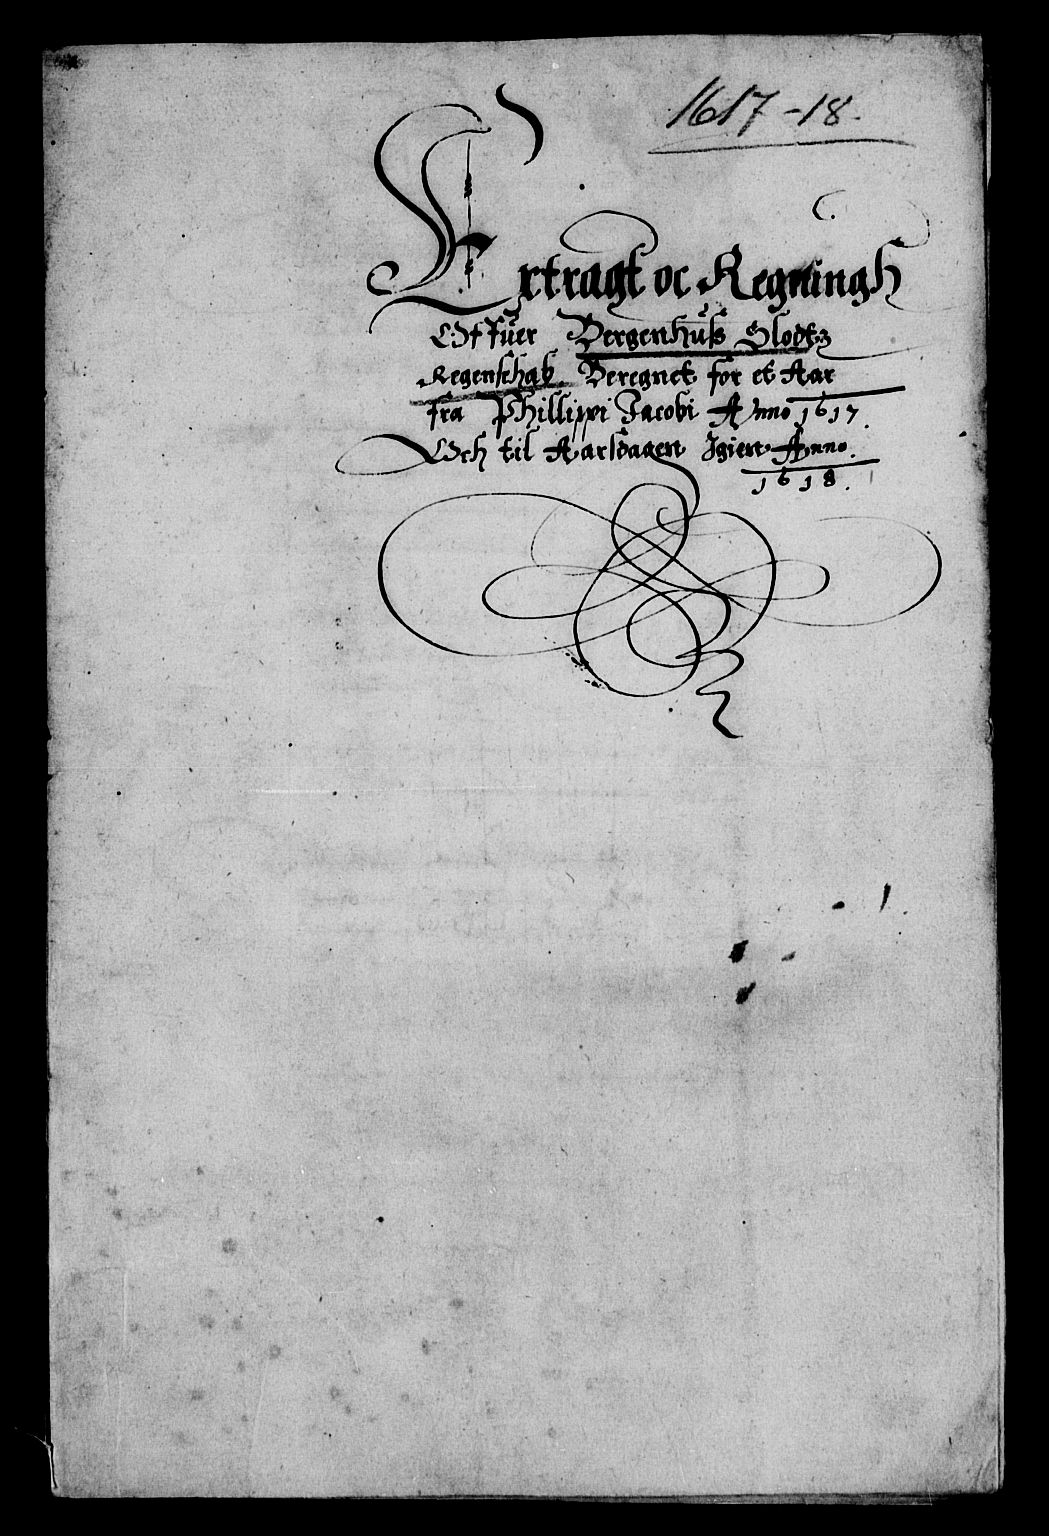 1617-18.
Extragt oc Regningh
Offuer Bergenhuß Slodtz
Regenschab Beregnet for et Aar
fra Phillippi Jacobi Anno 1617.
Och til Aarsdagen Igien Anno.
1618.